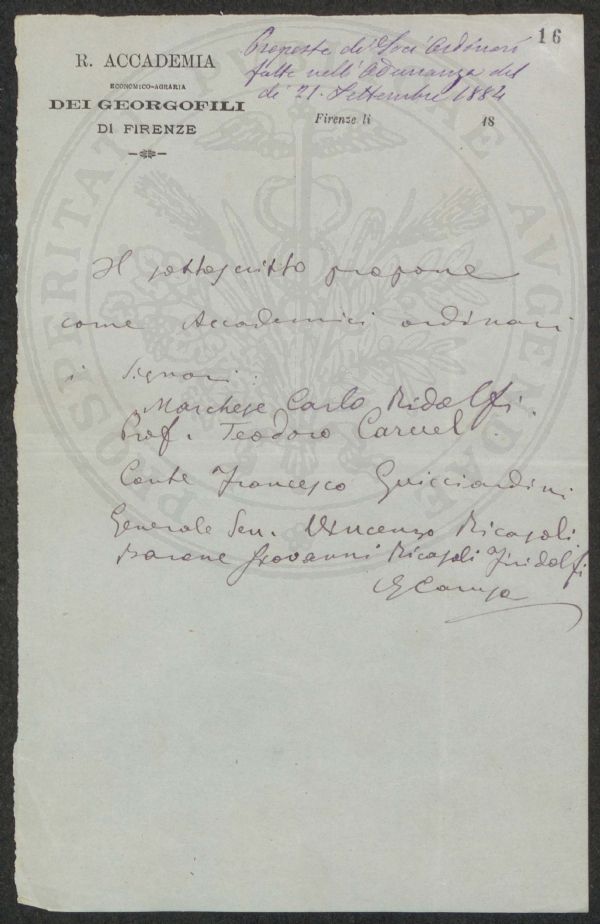 16
Proposte di Soci Ordinari
fatte nell'Adunanza del
dì 21. Settembre 1884
R. ACCADEMIA
ECONOMICO-AGRARIA
DEI GEORGOFILI
DI FIRENZE
Firenze li 18
PROSPERITATI PUBLICAE AVGENDAE
Il sottoscritto propone
come Accademici ordinari
i Signori:
Marchese Carlo Ridolfi.
Prof. Teodoro Caruel.
Conte Francesco Guicciardini
Generale Sen. Vincenzo Ricasoli
Barone Giovanni Ricasoli Firidolfi
Caruso